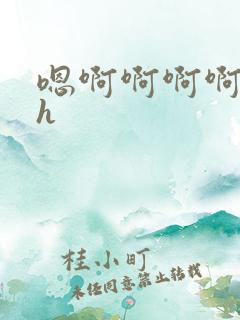 嗯啊啊啊啊
h
桂小町
未经同意禁止转载